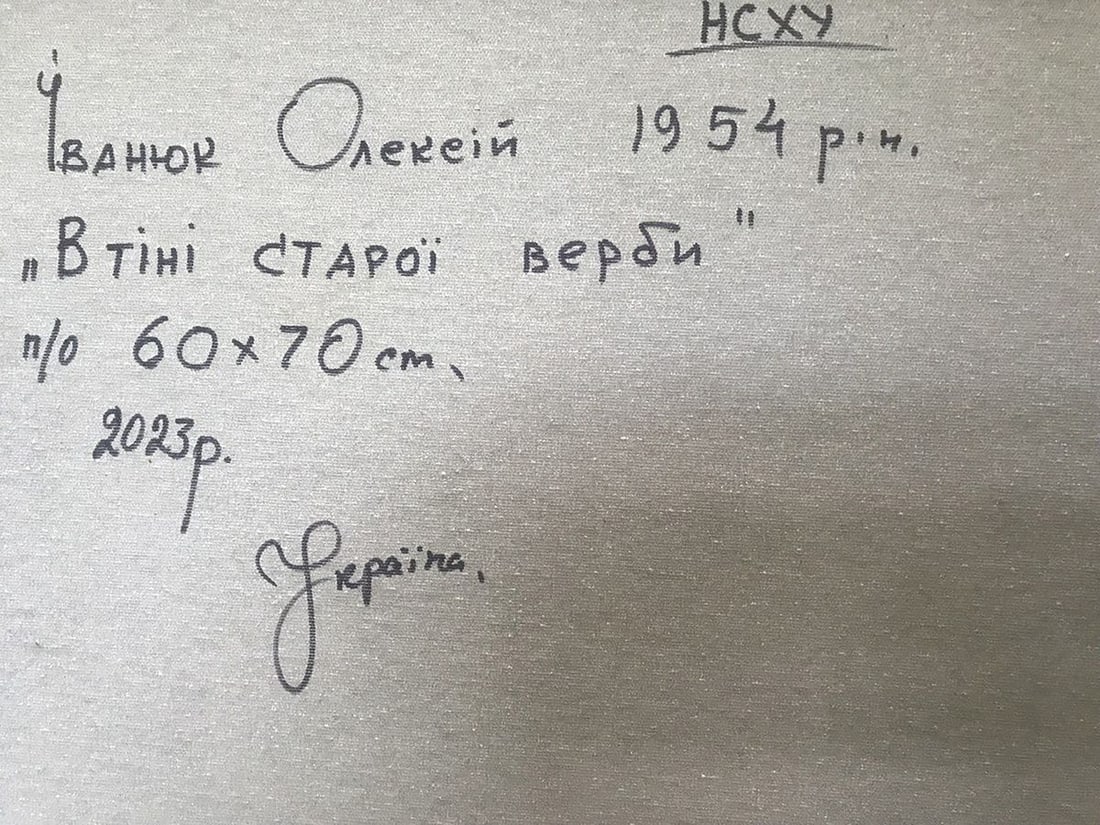 НСХУ
Іванюк Олексій 1954 р.н.
„В тіні старої верби"
п/о 60х70 см,
2023р.
Україна.